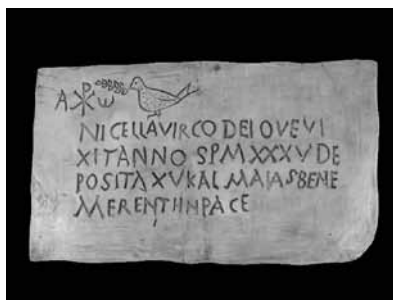 A ☧ ω
NICELLAVIRCODEIOVEVI
XITANNOSPMXXXVDE
POSITAXVKALMAIASBENE
MERENTIINPACE